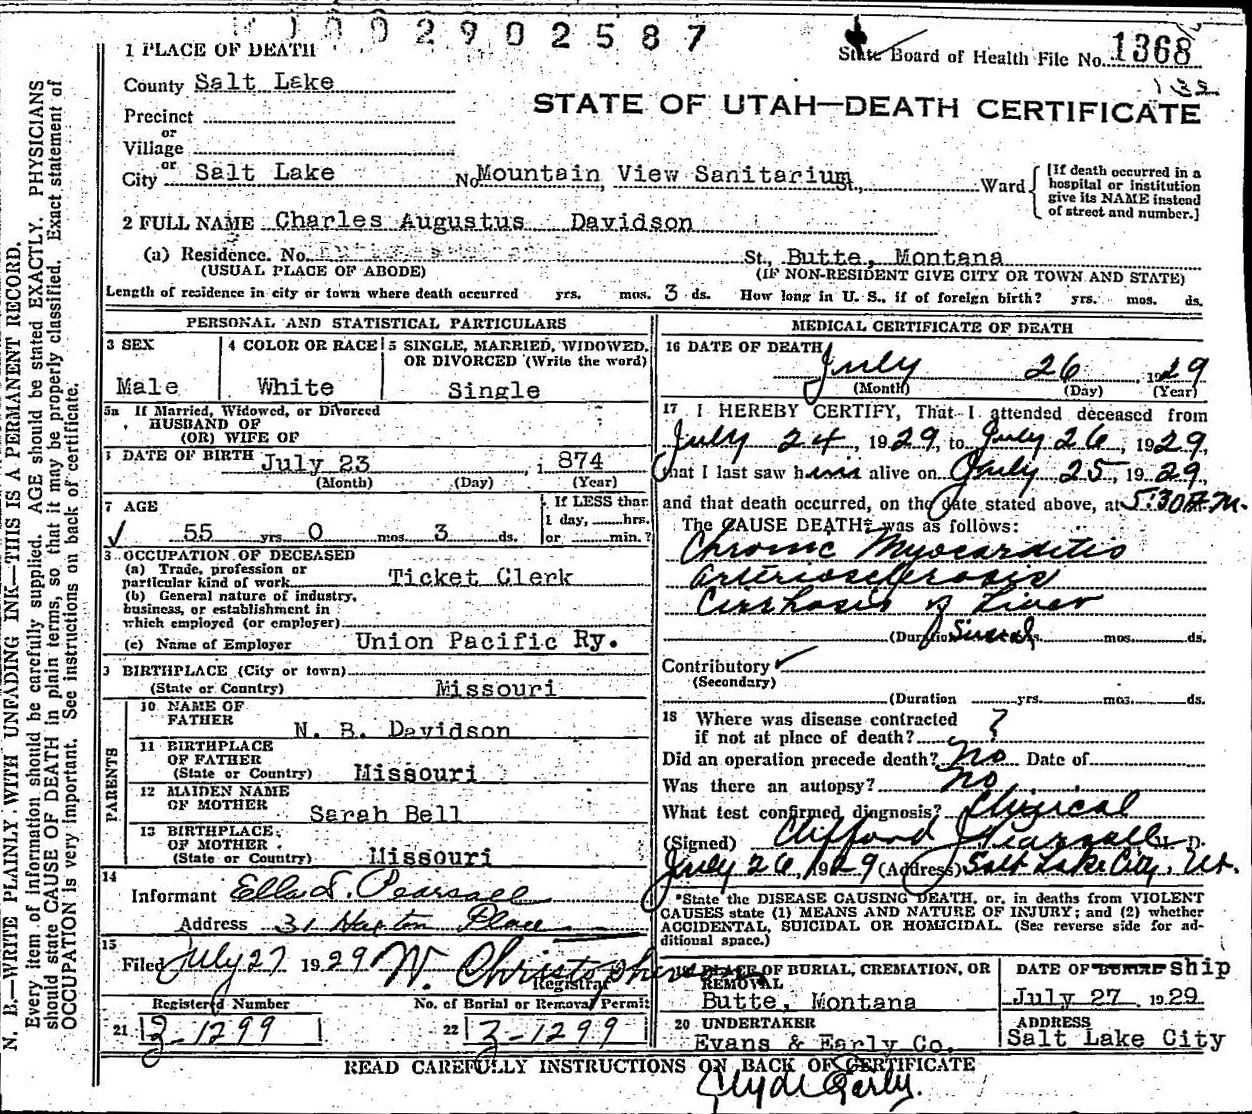 1002902587
1 PLACE OF DEATH
State Board of Health File No. 1368
132
County Salt Lake
STATE OF UTAH—DEATH CERTIFICATE
Precinct
or
Village
or
City Salt Lake No. Mountain View Sanitarium St., Ward
[If death occurred in a
hospital or institution
give its NAME instead
of street and number.]
2 FULL NAME Charles Augustus Davidson
(a) Residence. No. St., Butte, Montana
(USUAL PLACE OF ABODE) (IF NON-RESIDENT GIVE CITY OR TOWN AND STATE)
Length of residence in city or town where death occurred yrs. mos. 3 ds. How long in U. S., if of foreign birth? yrs. mos. ds.
PERSONAL AND STATISTICAL PARTICULARS
3 SEX
Male
4 COLOR OR RACE
White
5 SINGLE, MARRIED, WIDOWED,
OR DIVORCED (Write the word)
Single
5a If Married, Widowed, or Divorced
HUSBAND OF
(OR) WIFE OF
DATE OF BIRTH July 23, 1874
(Month) (Day) (Year)
7 AGE
55 yrs. 0 mos. 3 ds.
If LESS than
1 day, hrs.
or min.?
8. OCCUPATION OF DECEASED
(a) Trade, profession or
particular kind of work Ticket Clerk
(b) General nature of industry,
business, or establishment in
which employed (or employer)
(c) Name of Employer Union Pacific Ry.
9 BIRTHPLACE (City or town)
(State or Country) Missouri
PARENTS
10 NAME OF
FATHER N. B. Davidson
11 BIRTHPLACE
OF FATHER
(State or Country) Missouri
12 MAIDEN NAME
OF MOTHER Sarah Bell
13 BIRTHPLACE
OF MOTHER
(State or Country) Missouri
14
Informant Ella D. Pearsall
Address 31 Haxton Place
15
Filed July 27 1929 W. Christopherson
Registrar
Registered Number
21 3-1299
No. of Burial or Removal Permit
22 3-1299
MEDICAL CERTIFICATE OF DEATH
16 DATE OF DEATH
July 26, 1929
(Month) (Day) (Year)
17 I HEREBY CERTIFY, That I attended deceased from
July 24, 1929, to July 26, 1929,
that I last saw him alive on July 25, 1929,
and that death occurred, on the date stated above, at 5:30 A.M.
The CAUSE DEATH* was as follows:
Chronic Myocarditis
arteriosclerosis
Cirrhosis of Liver
(Duration several yrs. mos. ds.
Contributory
(Secondary)
(Duration yrs. mos. ds.
18 Where was disease contracted
if not at place of death? ?
Did an operation precede death? No Date of
Was there an autopsy? no
What test confirmed diagnosis? Clinical
(Signed) Clifford J Pearsall M. D.
July 26, 1929 (Address) Salt Lake City, Ut.
*State the DISEASE CAUSING DEATH, or, in deaths from VIOLENT
CAUSES state (1) MEANS AND NATURE OF INJURY; and (2) whether
ACCIDENTAL, SUICIDAL OR HOMICIDAL. (See reverse side for ad-
ditional space.)
19 PLACE OF BURIAL, CREMATION, OR
REMOVAL
Butte, Montana
DATE OF BURIAL Ship
July 27, 1929
20 UNDERTAKER
Evans & Early Co.
ADDRESS
Salt Lake City
READ CAREFULLY INSTRUCTIONS ON BACK OF CERTIFICATE
Clyde Early.
N. B.—WRITE PLAINLY WITH UNFADING INK—THIS IS A PERMANENT RECORD.
Every item of information should be carefully supplied. AGE should be stated EXACTLY. PHYSICIANS
should state CAUSE OF DEATH in plain terms, so that it may be properly classified. Exact statement of
OCCUPATION is very important. See instructions on back of certificate.